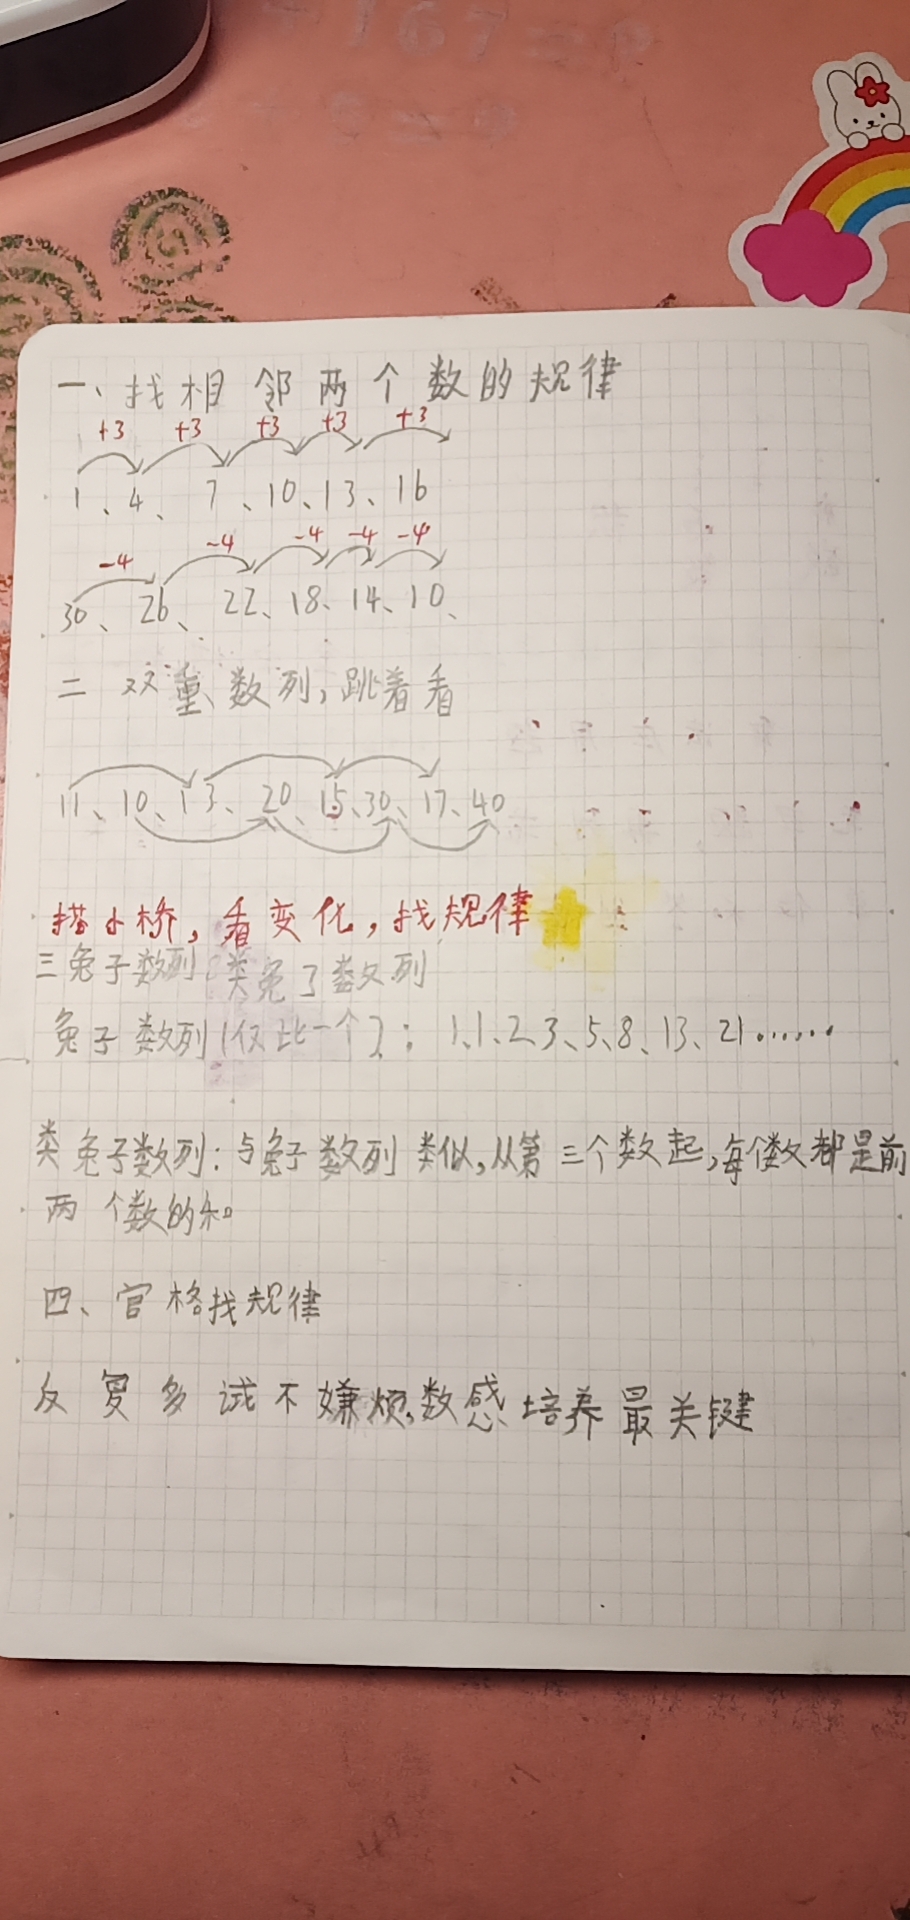 一、找相邻两个数的规律
+3 +3 +3 +3 +3
1、4、7、10、13、16
-4 -4 -4 -4 -4
30、26、22、18、14、10、
二 双重数列,跳着看
11、10、13、20、15、30、17、40
搭小桥,看变化,找规律
三兔子数列 类兔子数列
兔子数列(仅此一个):1、1、2、3、5、8、13、21……
类兔子数列:与兔子数列类似,从第三个数起,每个数都是前
两个数的和
四、宫格找规律
反复多试不嫌烦,数感培养最关键